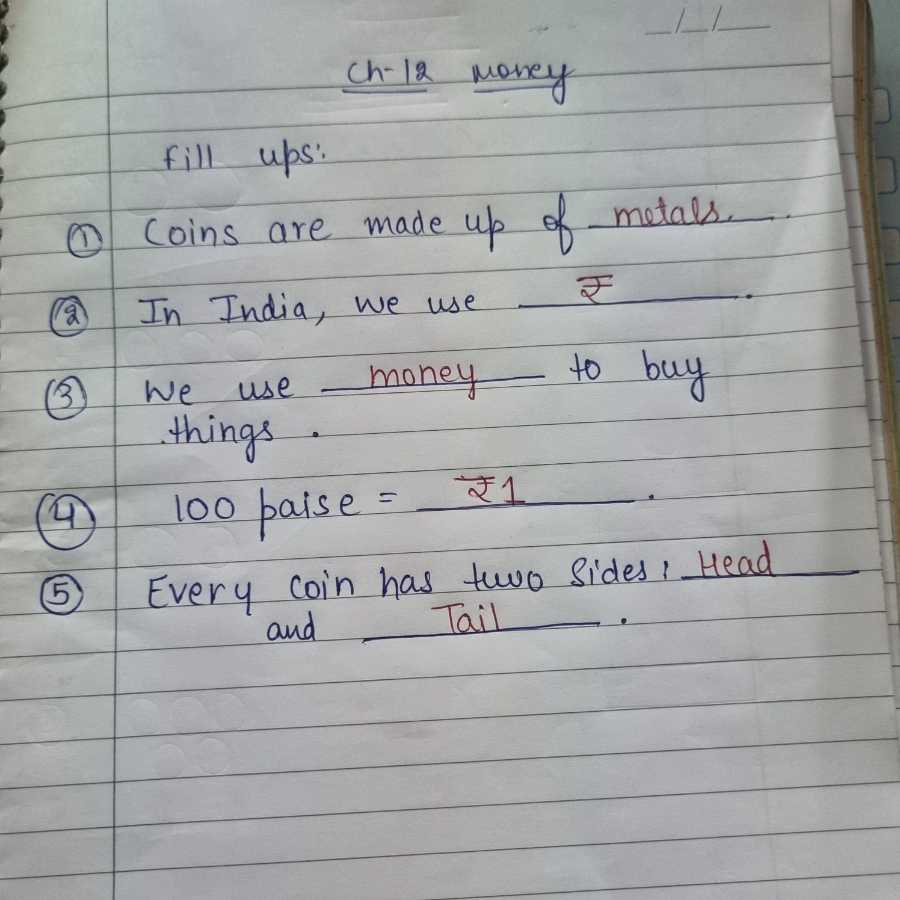 __/__/__
Ch-12 Money
Fill ups:
① Coins are made up of metals.
② In India, we use ₹.
③ We use money to buy
things.
④ 100 paise = ₹1.
⑤ Every coin has two sides: Head
and Tail.